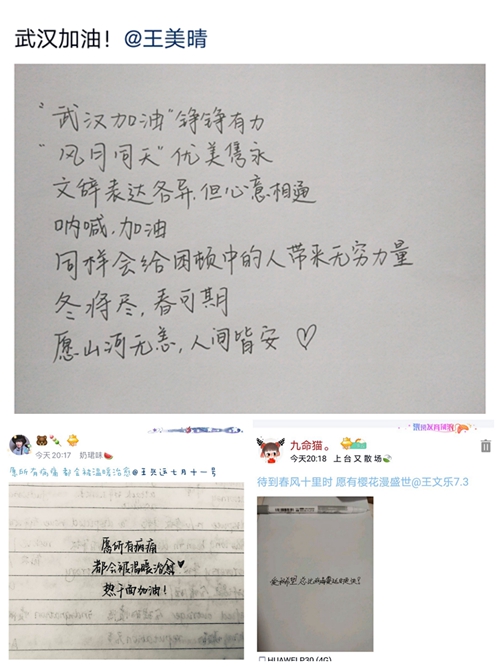 武汉加油！@王美晴
“武汉加油”铮铮有力
“风月同天”优美隽永
文辞表达各异，但心意相通
呐喊，加油
同样会给困顿中的人带来无穷力量
冬将尽，春可期
愿山河无恙，人间皆安♡
今天20:17 奶珺味
愿所有病痛 都会被温暖治愈@王
七月十一号
愿所有病痛
都会被温暖治愈♥
热干面加油！
九命猫。
今天20:18 上台又散场
待到春风十里时 愿有樱花漫盛世@王文乐7.3
HUAWEI P30 (4G)